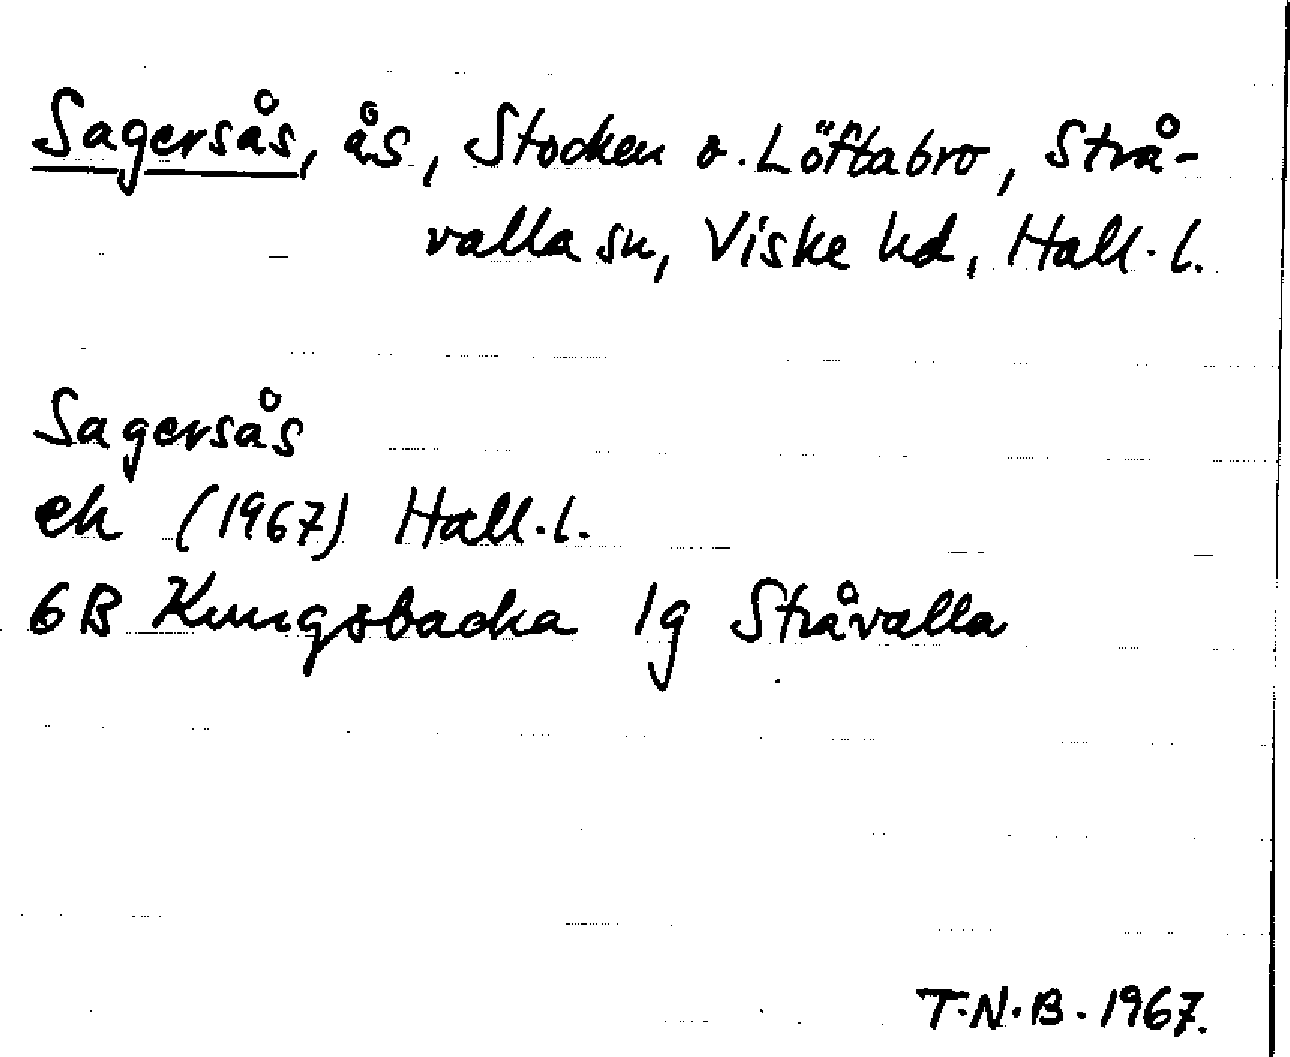 Sagersås, ås, Stocken o. Löftabro, Strå-
valla sn, Viske hd, Hall.l.
Sagersås
ek (1967) Hall.l.
6B Kungsbacka 1g Stråvalla
T.N.B. 1967.